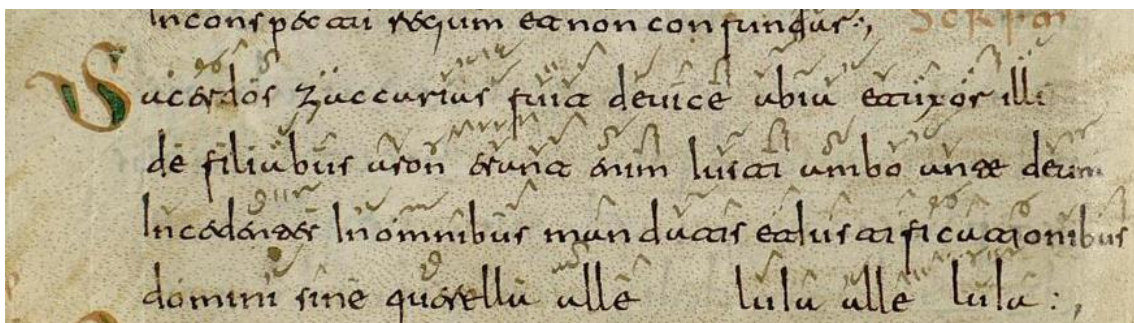 In conspectu regum et non confundar:,
Sacerdos zaccarias fuit de uice abia et uxor illi
de filiabus aron erant enim iusti ambo ante deum
Incedentes In omnibus mandatis et iustificationibus
domini sine querella alle luia alle luia:,